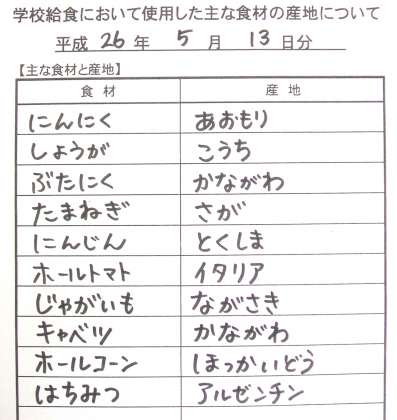 学校給食において使用した主な食材の産地について
平成 26 年 5 月 13 日分
【主な食材と産地】
食材 産地
にんにく あおもり
しょうが こうち
ぶたにく かながわ
たまねぎ さが
にんじん とくしま
ホールトマト イタリア
じゃがいも ながさき
キャベツ かながわ
ホールコーン ほっかいどう
はちみつ アルゼンチン